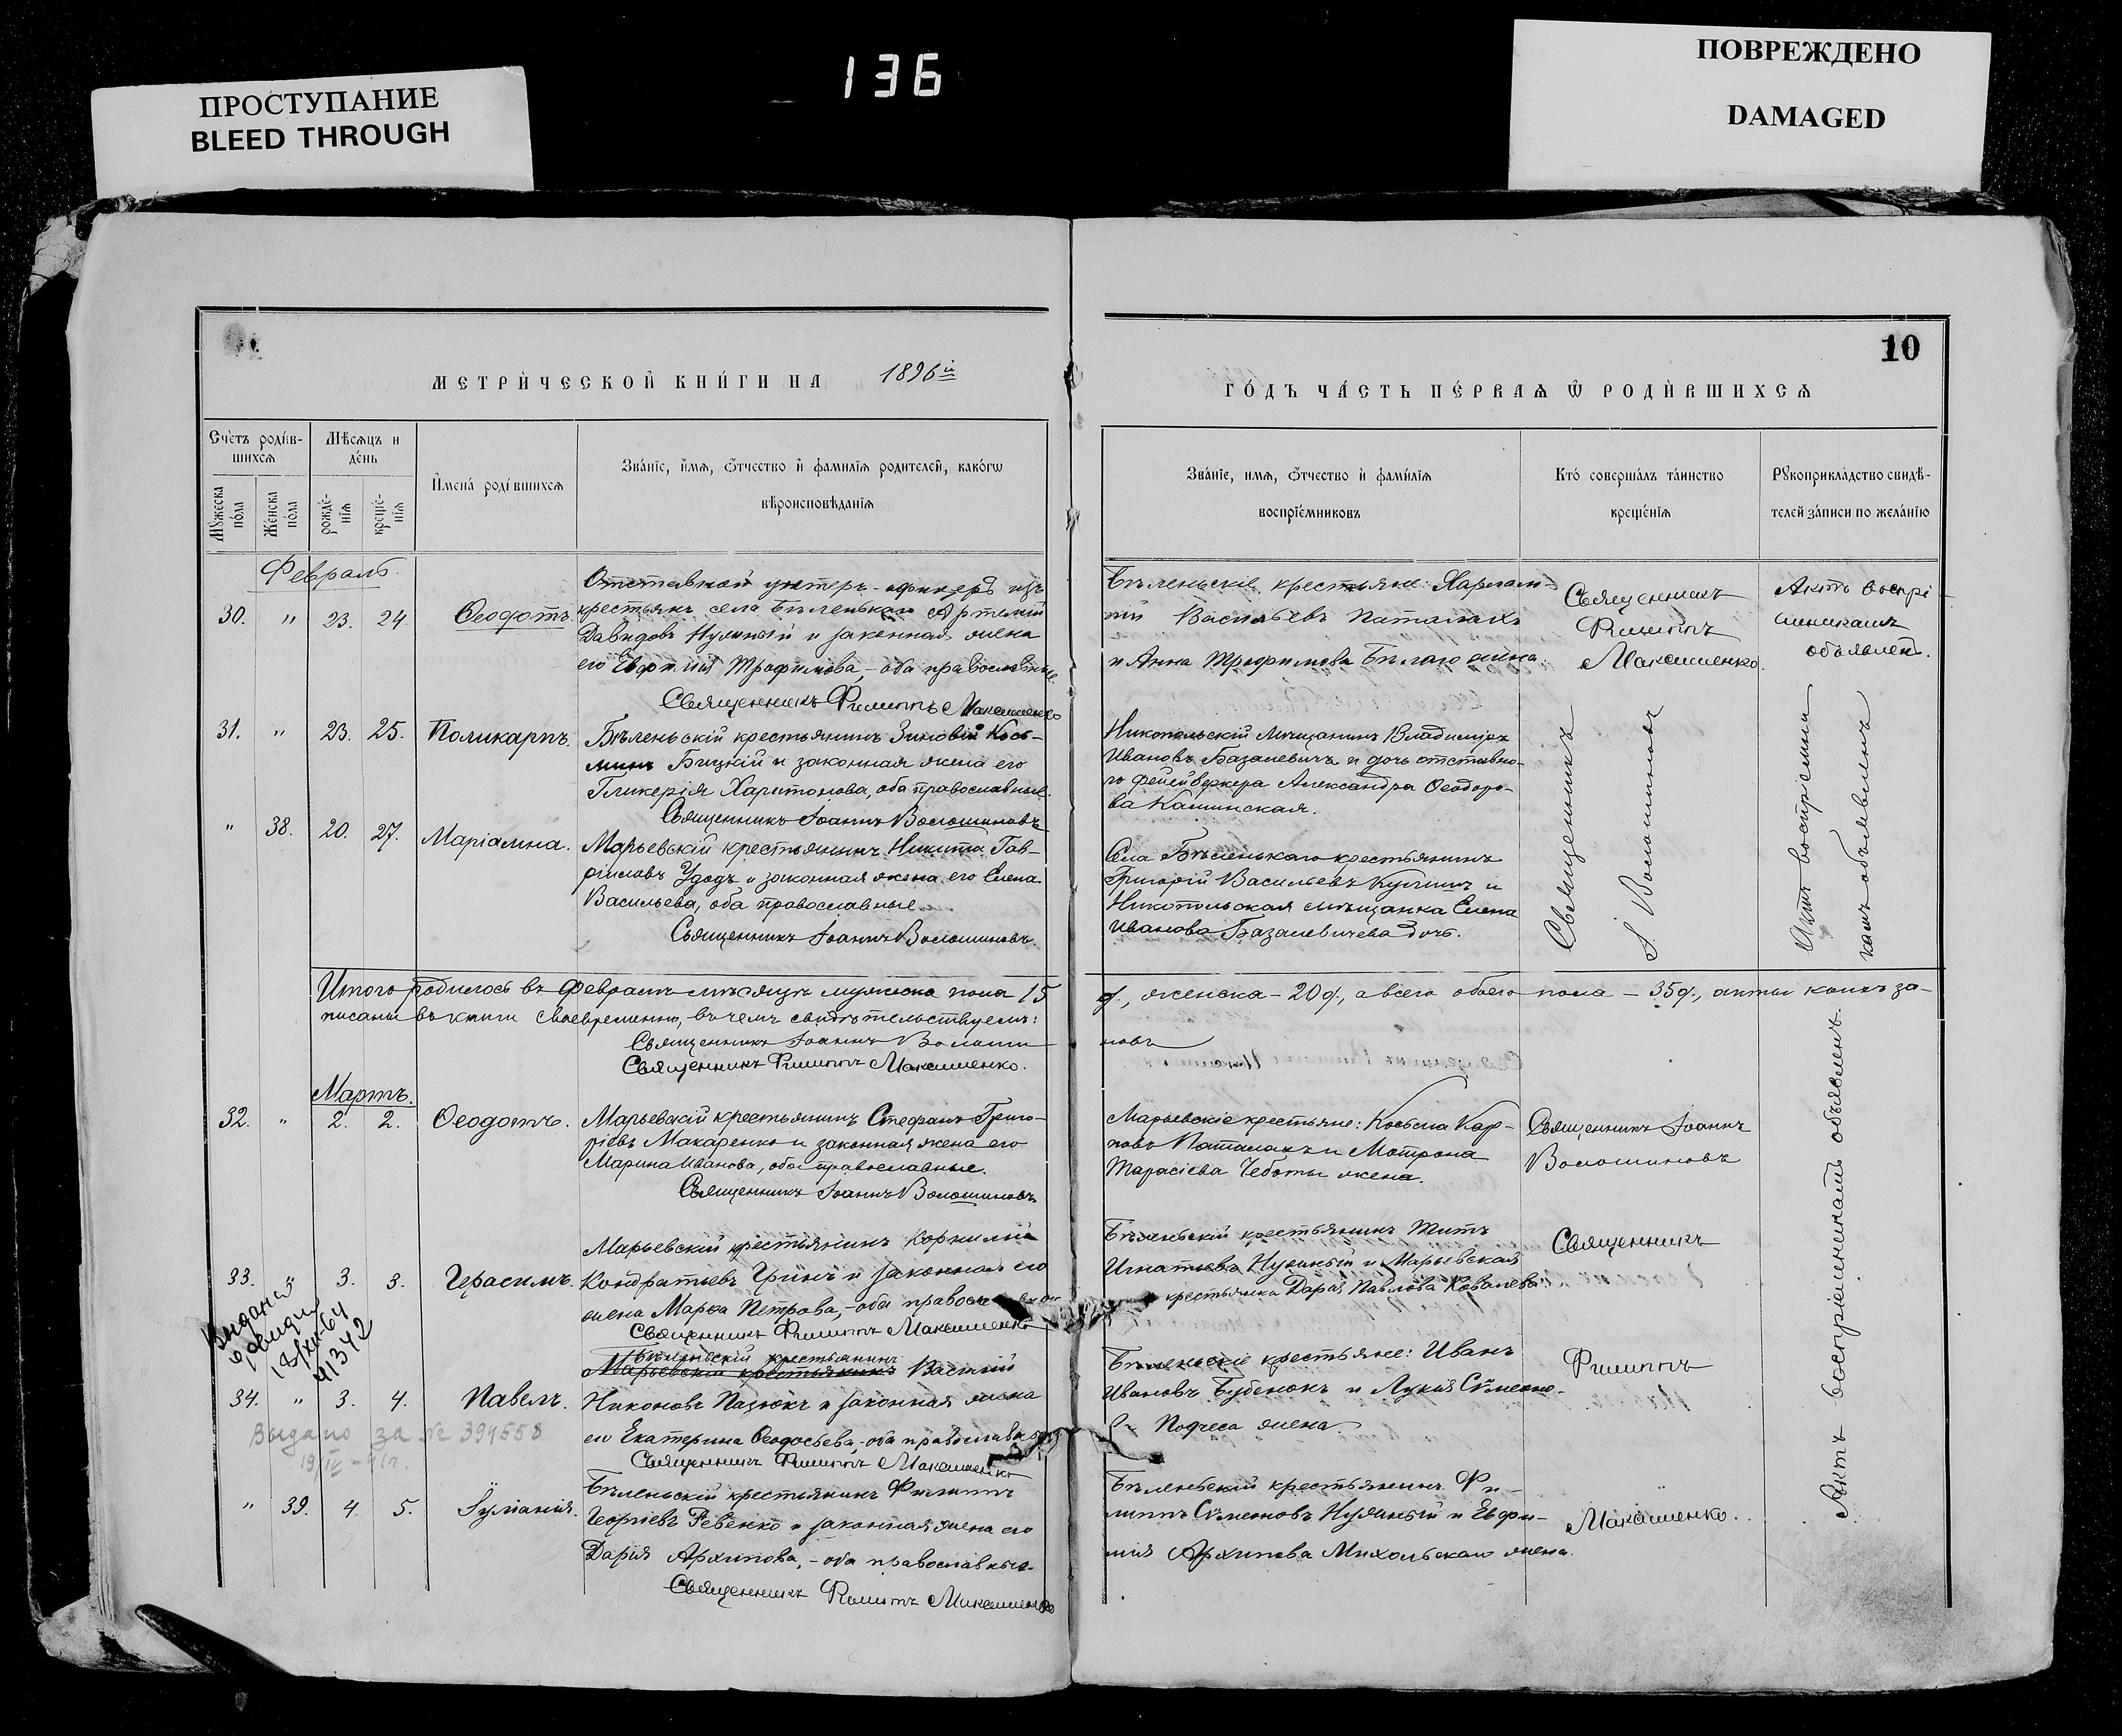 ПРОСТУПАНИЕ
BLEED THROUGH
136
ПОВРЕЖДЕНО
DAMAGED
10
МЕТРИ́ЧЕСКОЙ КНИ́ГИ НА 1896й
ГО́ДЪ ЧА́СТЬ ПЕ́РВАѦ Ѡ РОДИ́ВШИХСѦ
Счетъ роди́в-
шихсѧ
Мѣсѧцъ и
де́нь
Мꙋжеска
по́ла
Же́нска
по́ла
рожде́-
нїѧ
креще́-
нїѧ
И҆мена́ роди́вшихсѧ
Зва́нїе, и҆́мѧ, ѻ҆́тчество и҆ фами́лїѧ родителей, како́гѡ
вѣроисповѣ́данїѧ
Зва́нїе, имѧ, ѻ҆́тчество и҆ фами́лїѧ
воспрїе́мниковъ
Кто́ соверша́лъ та́инство
креще́нїѧ
Рꙋкоприкла́дство свидѣ́-
телей за́писи по жела́нїю
Февраль.
30. " 23. 24. Ѳеодотъ.
Отставной унтеръ-офицеръ изъ
крестьянъ села Бѣленькаго Артемій
Давидовъ Нужный и законная жена
его Евфимія Трофимова, - оба православные.
Священникъ Филиппъ Макашенко
Бѣленьскіе крестьяне: Харлам-
пій Васильевъ Паталахъ
и Анна Трофимова Бѣлаго жена.
Священникъ
Филиппъ
Макашенко.
Актъ воспрі-
емникамъ
объявленъ.
31. " 23. 25. Поликарпъ.
Бѣленьскій крестьянинъ Зиновій Кось-
минъ Бицкій и законная жена его
Гликерія Харитонова, оба православные.
Священникъ Іоаннъ Волошиновъ
Никопольскій мѣщанинъ Владиміръ
Ивановъ Базалевичъ и дочь отставно-
го фейерверкера Александра Ѳеодоро-
ва Кашинская.
" 38. 20. 27. Маріамна.
Марьевскій крестьянинъ Никита Гав-
риловъ Удодъ и законная жена его Елена
Васильева, оба православные.
Священникъ Іоаннъ Волошиновъ.
Села Бѣленькаго крестьянинъ
Григорій Васильевъ и
Никопольская мѣщанка Елена
Иванова Базалевичева дочь.
Священникъ
І. Волошиновъ
Актъ воспріемни-
камъ объявленъ
Итого родилось въ Февралѣ мѣсяцѣ мужеска пола 15
д., женска - 20 д., а всего обоего пола - 35 д., акты коихъ за-
писаны въ книги своевременно, въ чемъ свидѣтельствуемъ:
Священникъ Іоаннъ Волоши-
новъ
Священникъ Филиппъ Макашенко.
Мартъ.
32. " 2. 2. Ѳеодотъ.
Марьевскій крестьянинъ Стефанъ Григо-
ріевъ Макаренко и законная жена его
Марина Иванова, оба православные.
Священникъ Іоаннъ Волошиновъ
Марьевскіе крестьяне: Косьма Кар-
повъ Паталахъ и Мотрона
Тарасіева Чеботы жена.
Священникъ Іоаннъ
Волошиновъ
33. " 3. 3. Герасимъ.
Марьевскій крестьянинъ Корнилій
Кондратьевъ Гринь и законная его
жена Марѳа Петрова, - оба православ
Священникъ Филиппъ Макашенко
Бѣленьскій крестьянинъ Титъ
Игнатьевъ Нужный и Марьевская
крестьянка Дарія Павлова Ковалева
Священникъ
18/XII-64
41342
34. " 3. 4. Павелъ.
Бѣленьскій крестьянинъ
Марьевскій крестьянинъ Василій
Никоновъ Пазюкъ и законная жена
его Екатерина Ѳеодосьева, - оба православ
Священникъ Филиппъ Макашенко
Бѣленьскіе крестьяне: Иванъ
Ивановъ Бубенокъ и Лукія Сѵмеоно-
Подчеса жена.
Филиппъ
Выдано за № 394558
19/IV
" 39. 4. 5. Іуліанія.
Бѣленьскій крестьянинъ Филиппъ
Георгіевъ Ревенко и законная жена его
Дарія Архипова, - оба православные.
Священникъ Филиппъ Макашенко
Бѣленьскій крестьянинъ Фи-
липпъ Сѵмеоновъ Нужный и Евфи-
мія Архипова Михольскаго жена.
Макашенко.
Актъ воспріемникамъ объявленъ.